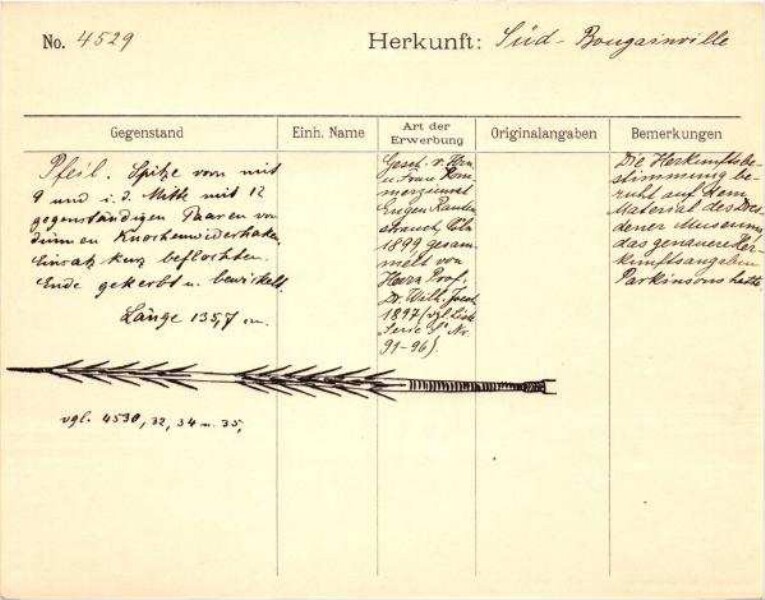 No. 4529
Herkunft: Süd-Bougainville
Gegenstand
Einh. Name
Art der
Erwerbung
Originalangaben
Bemerkungen
Pfeil. Spitze vorn mit
9 und i. d. Mitte mit 12
gegenständigen Paaren von
dünnen Knochenwiderhaken,
Einsatz kurz beflochten.
Ende gekerbt u. bewickelt.
Länge 135,7 cm.
Gesch. v. Hrn
u. Frau Kom
merzienrat
Eugen Rauten
strauch, Cöln
1899, gesam
melt von
Herrn Prof.
Dr. Wilh. Joest
1897 (vgl. Liste
Serie S Nr.
91-96).
Die Herkunftsbe-
stimmung be-
ruht auf dem
Material des Dres-
dener Museums,
das genauere Her-
kunftsangaben
Parkinsons hatte.
vgl. 4530, 32, 34 u. 35,